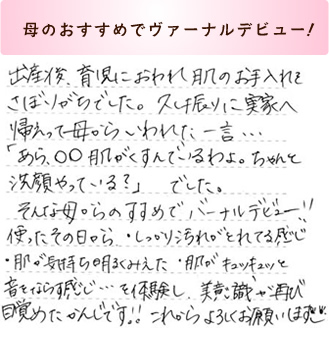 母のおすすめでヴァーナルデビュー!
出産後、育児におわれ肌のお手入れを
さぼりがちでした。久し振りに実家へ
帰えって母からいわれた一言…
「あら、○○肌がくすんでいるわよ。ちゃんと
洗顔やっている?」 でした。
そんな母からのすすめでバーナルデビュー!!
使ったその日から、・しっかり汚れがとれてる感じ
・肌が気持ち明るくみえた ・肌がキュッキュッと
音をならす感じ…を体験し、美意識が再び
目覚めたかんじです!! これからよろしくお願いします